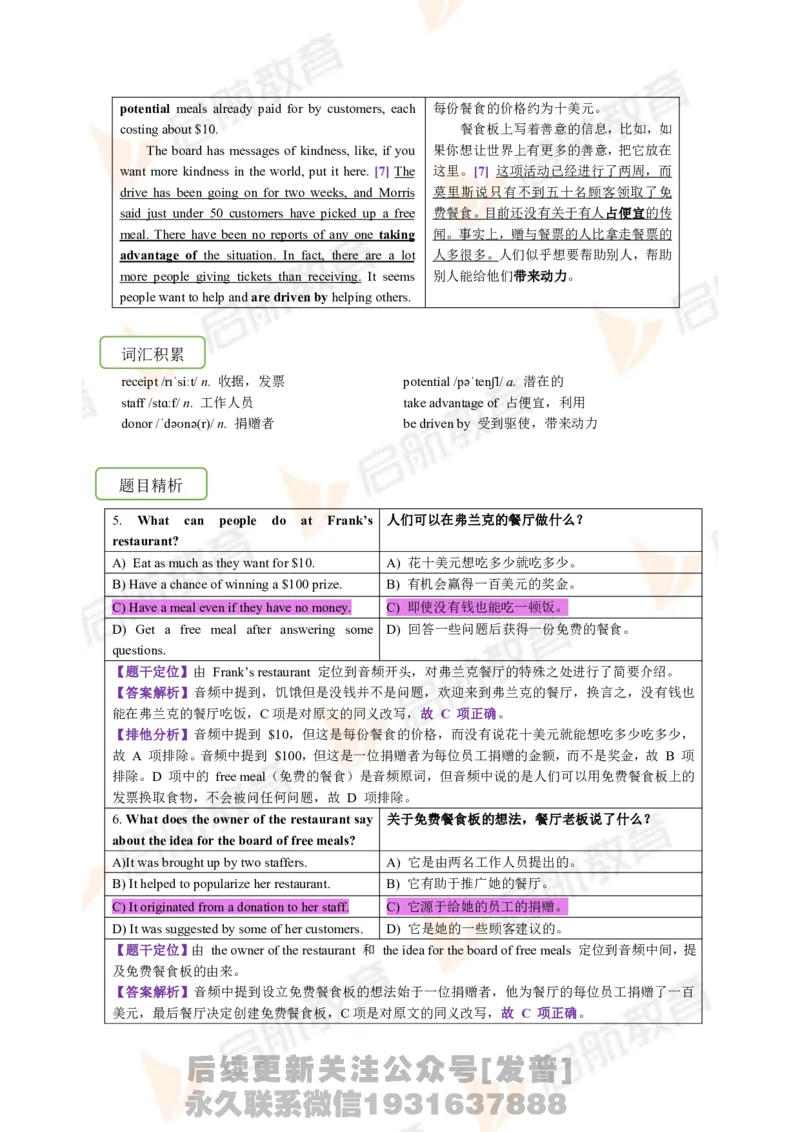 potential meals already paid for by customers, each
costing about $10.
The board has messages of kindness, like, if you
want more kindness in the world, put it here. [7] The
drive has been going on for two weeks, and Morris
said just under 50 customers have picked up a free
meal. There have been no reports of any one taking
advantage of the situation. In fact, there are a lot
more people giving tickets than receiving. It seems
people want to help and are driven by helping others.
每份餐食的价格约为十美元。
餐食板上写着善意的信息，比如，如
果你想让世界上有更多的善意，把它放在
这里。[7] 这项活动已经进行了两周，而
莫里斯说只有不到五十名顾客领取了免
费餐食。目前还没有关于有人占便宜的传
闻。事实上，赠与餐票的人比拿走餐票的
人多很多。人们似乎想要帮助别人，帮助
别人能给他们带来动力。
词汇积累
receipt /rɪˈsiːt/ n. 收据，发票
potential /pəˈtenʃl/ a. 潜在的
staff /stɑːf/ n. 工作人员
take advantage of 占便宜，利用
donor /ˈdəʊnə(r)/ n. 捐赠者
be driven by 受到驱使，带来动力
题目精析
5. What can people do at Frank's
restaurant?
人们可以在弗兰克的餐厅做什么？
A) Eat as much as they want for $10.
A) 花十美元想吃多少就吃多少。
B) Have a chance of winning a $100 prize.
B) 有机会赢得一百美元的奖金。
C) Have a meal even if they have no money.
C) 即使没有钱也能吃一顿饭。
D) Get a free meal after answering some
questions.
D) 回答一些问题后获得一份免费的餐食。
【题干定位】由 Frank's restaurant 定位到音频开头，对弗兰克餐厅的特殊之处进行了简要介绍。
【答案解析】音频中提到，饥饿但是没钱并不是问题，欢迎来到弗兰克的餐厅，换言之，没有钱也
能在弗兰克的餐厅吃饭，C项是对原文的同义改写，故 C 项正确。
【排他分析】音频中提到 $10，但这是每份餐食的价格，而没有说花十美元就能想吃多少吃多少，
故 A 项排除。音频中提到 $100，但这是一位捐赠者为每位员工捐赠的金额，而不是奖金，故 B 项
排除。D 项中的 free meal（免费的餐食）是音频原词，但音频中说的是人们可以用免费餐食板上的
发票换取食物，不会被问任何问题，故 D 项排除。
6. What does the owner of the restaurant say
about the idea for the board of free meals?
关于免费餐食板的想法，餐厅老板说了什么？
A)It was brought up by two staffers.
A) 它是由两名工作人员提出的。
B) It helped to popularize her restaurant.
B) 它有助于推广她的餐厅。
C) It originated from a donation to her staff.
C) 它源于给她的员工的捐赠。
D) It was suggested by some of her customers.
D) 它是她的一些顾客建议的。
【题干定位】由 the owner of the restaurant 和 the idea for the board of free meals 定位到音频中间，提
及免费餐食板的由来。
【答案解析】音频中提到设立免费餐食板的想法始于一位捐赠者，他为餐厅的每位员工捐赠了一百
美元，最后餐厅决定创建免费餐食板，C项是对原文的同义改写，故 C 项正确。
后续更新关注公众号[发普]
永久联系微信1931637888
启航教育